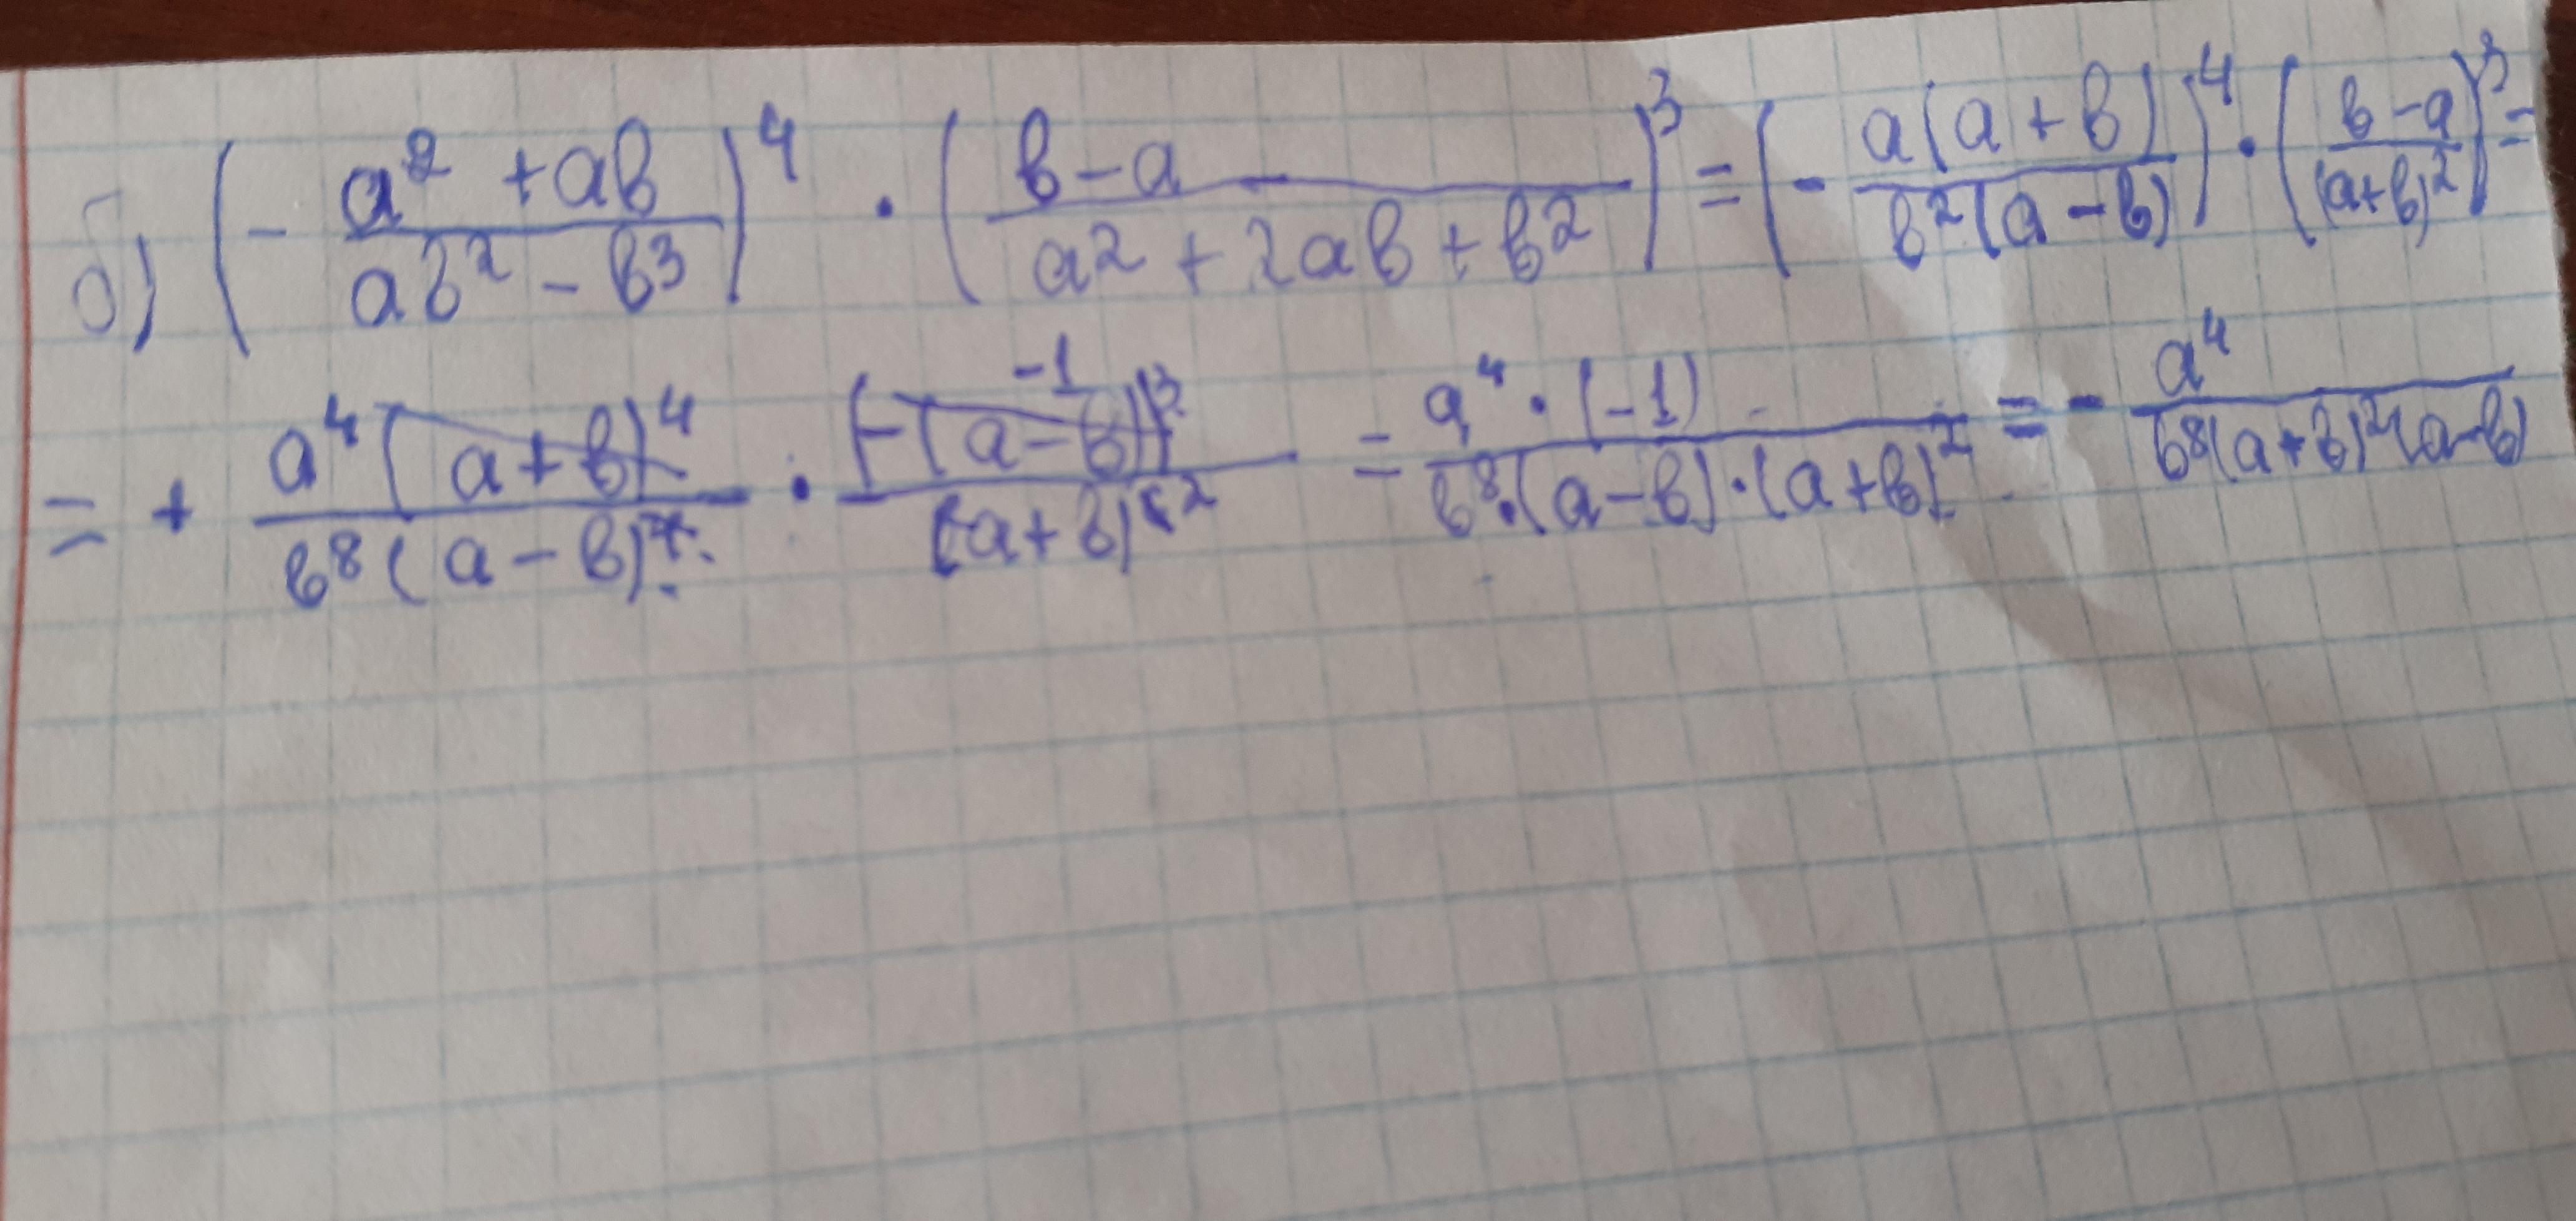 б) (- (a² + ab)/(ab² - b³))⁴ · ((b - a)/(a² + 2ab + b²))³ = (- a(a + b)/(b²(a - b)))⁴ · ((b - a)/(a+b)²)³ =
= + a⁴(a+b)⁴/(b⁸(a - b)⁴) · (-(a-b))³/(a+b)⁶ -1 ² = a⁴ · (-1)/(b⁸·(a-b)·(a+b)²) = - a⁴/(b⁸(a+b)²(a-b))